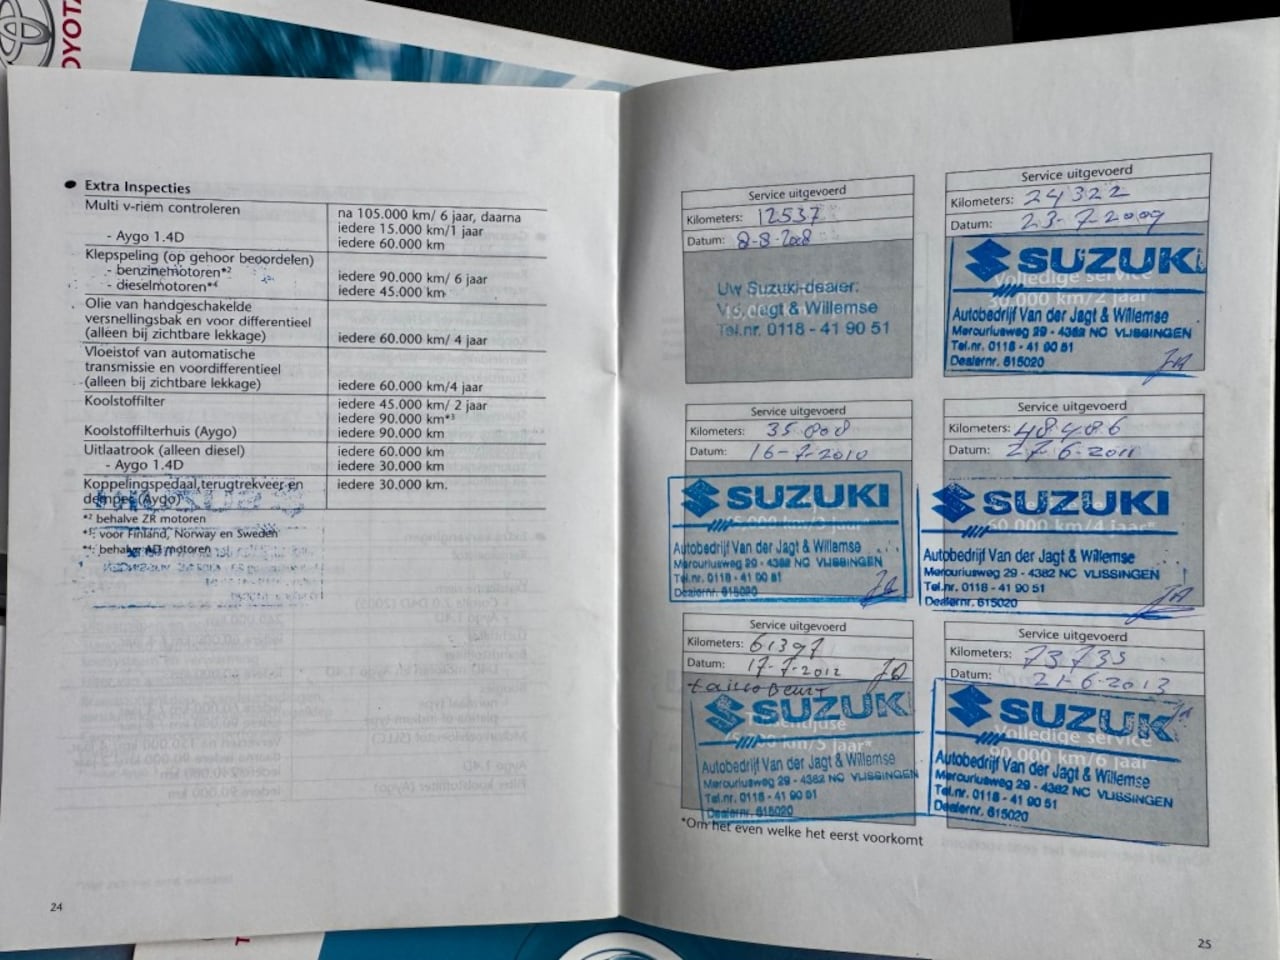 TOYOTA
Extra Inspecties
Multi v-riem controleren
na 105.000 km/ 6 jaar, daarna
iedere 15.000 km/1 jaar
- Aygo 1.4D
iedere 60.000 km
Klepspeling (op gehoor beoordelen)
- benzinemotoren*2
iedere 90.000 km/ 6 jaar
- dieselmotoren*4
iedere 45.000 km
Olie van handgeschakelde
versnellingsbak en voor differentieel
(alleen bij zichtbare lekkage)
iedere 60.000 km/ 4 jaar
Vloeistof van automatische
transmissie en voordifferentieel
(alleen bij zichtbare lekkage)
iedere 60.000 km/4 jaar
Koolstoffilter
iedere 45.000 km/ 2 jaar
iedere 90.000 km*3
Koolstoffilterhuis (Aygo)
iedere 90.000 km
Uitlaatrook (alleen diesel)
iedere 60.000 km
- Aygo 1.4D
iedere 30.000 km
Koppelingspedaal,terugtrekveer en
demper (Aygo)
iedere 30.000 km.
*2 behalve ZR motoren
*3: voor Finland, Norway en Sweden
*4: behalve AD motoren
24
Service uitgevoerd
Kilometers: 12537
Datum: 8-8-2008
Uw Suzuki-dealer:
V.d. Jagt & Willemse
Tel.nr. 0118 - 41 90 51
Service uitgevoerd
Kilometers: 24322
Datum: 23-7-2009
SUZUKI
Volledige service
30.000 km/2 jaar
Autobedrijf Van der Jagt & Willemse
Mercuriusweg 29 - 4382 NC VLISSINGEN
Tel.nr. 0118 - 41 90 51
Dealernr. 615020
Service uitgevoerd
Kilometers: 35008
Datum: 16-7-2010
SUZUKI
Autobedrijf Van der Jagt & Willemse
Mercuriusweg 29 - 4382 NC VLISSINGEN
Tel.nr. 0118 - 41 90 51
Dealernr. 615020
Service uitgevoerd
Kilometers: 48486
Datum: 27-6-2011
SUZUKI
60.000 km/4 jaar*
Autobedrijf Van der Jagt & Willemse
Mercuriusweg 29 - 4382 NC VLISSINGEN
Tel.nr. 0118 - 41 90 51
Dealernr. 615020
Service uitgevoerd
Kilometers: 61397
Datum: 17-7-2012
SUZUKI
km/5 jaar*
Autobedrijf Van der Jagt & Willemse
Mercuriusweg 29 - 4382 NC VLISSINGEN
Tel.nr. 0118 - 41 90 51
Dealernr. 615020
Service uitgevoerd
Kilometers: 73735
Datum: 21-6-2013
SUZUKI
Volledige service
90.000 km/6 jaar
Autobedrijf Van der Jagt & Willemse
Mercuriusweg 29 - 4382 NC VLISSINGEN
Tel.nr. 0118 - 41 90 51
Dealernr. 615020
*Om het even welke het eerst voorkomt
25